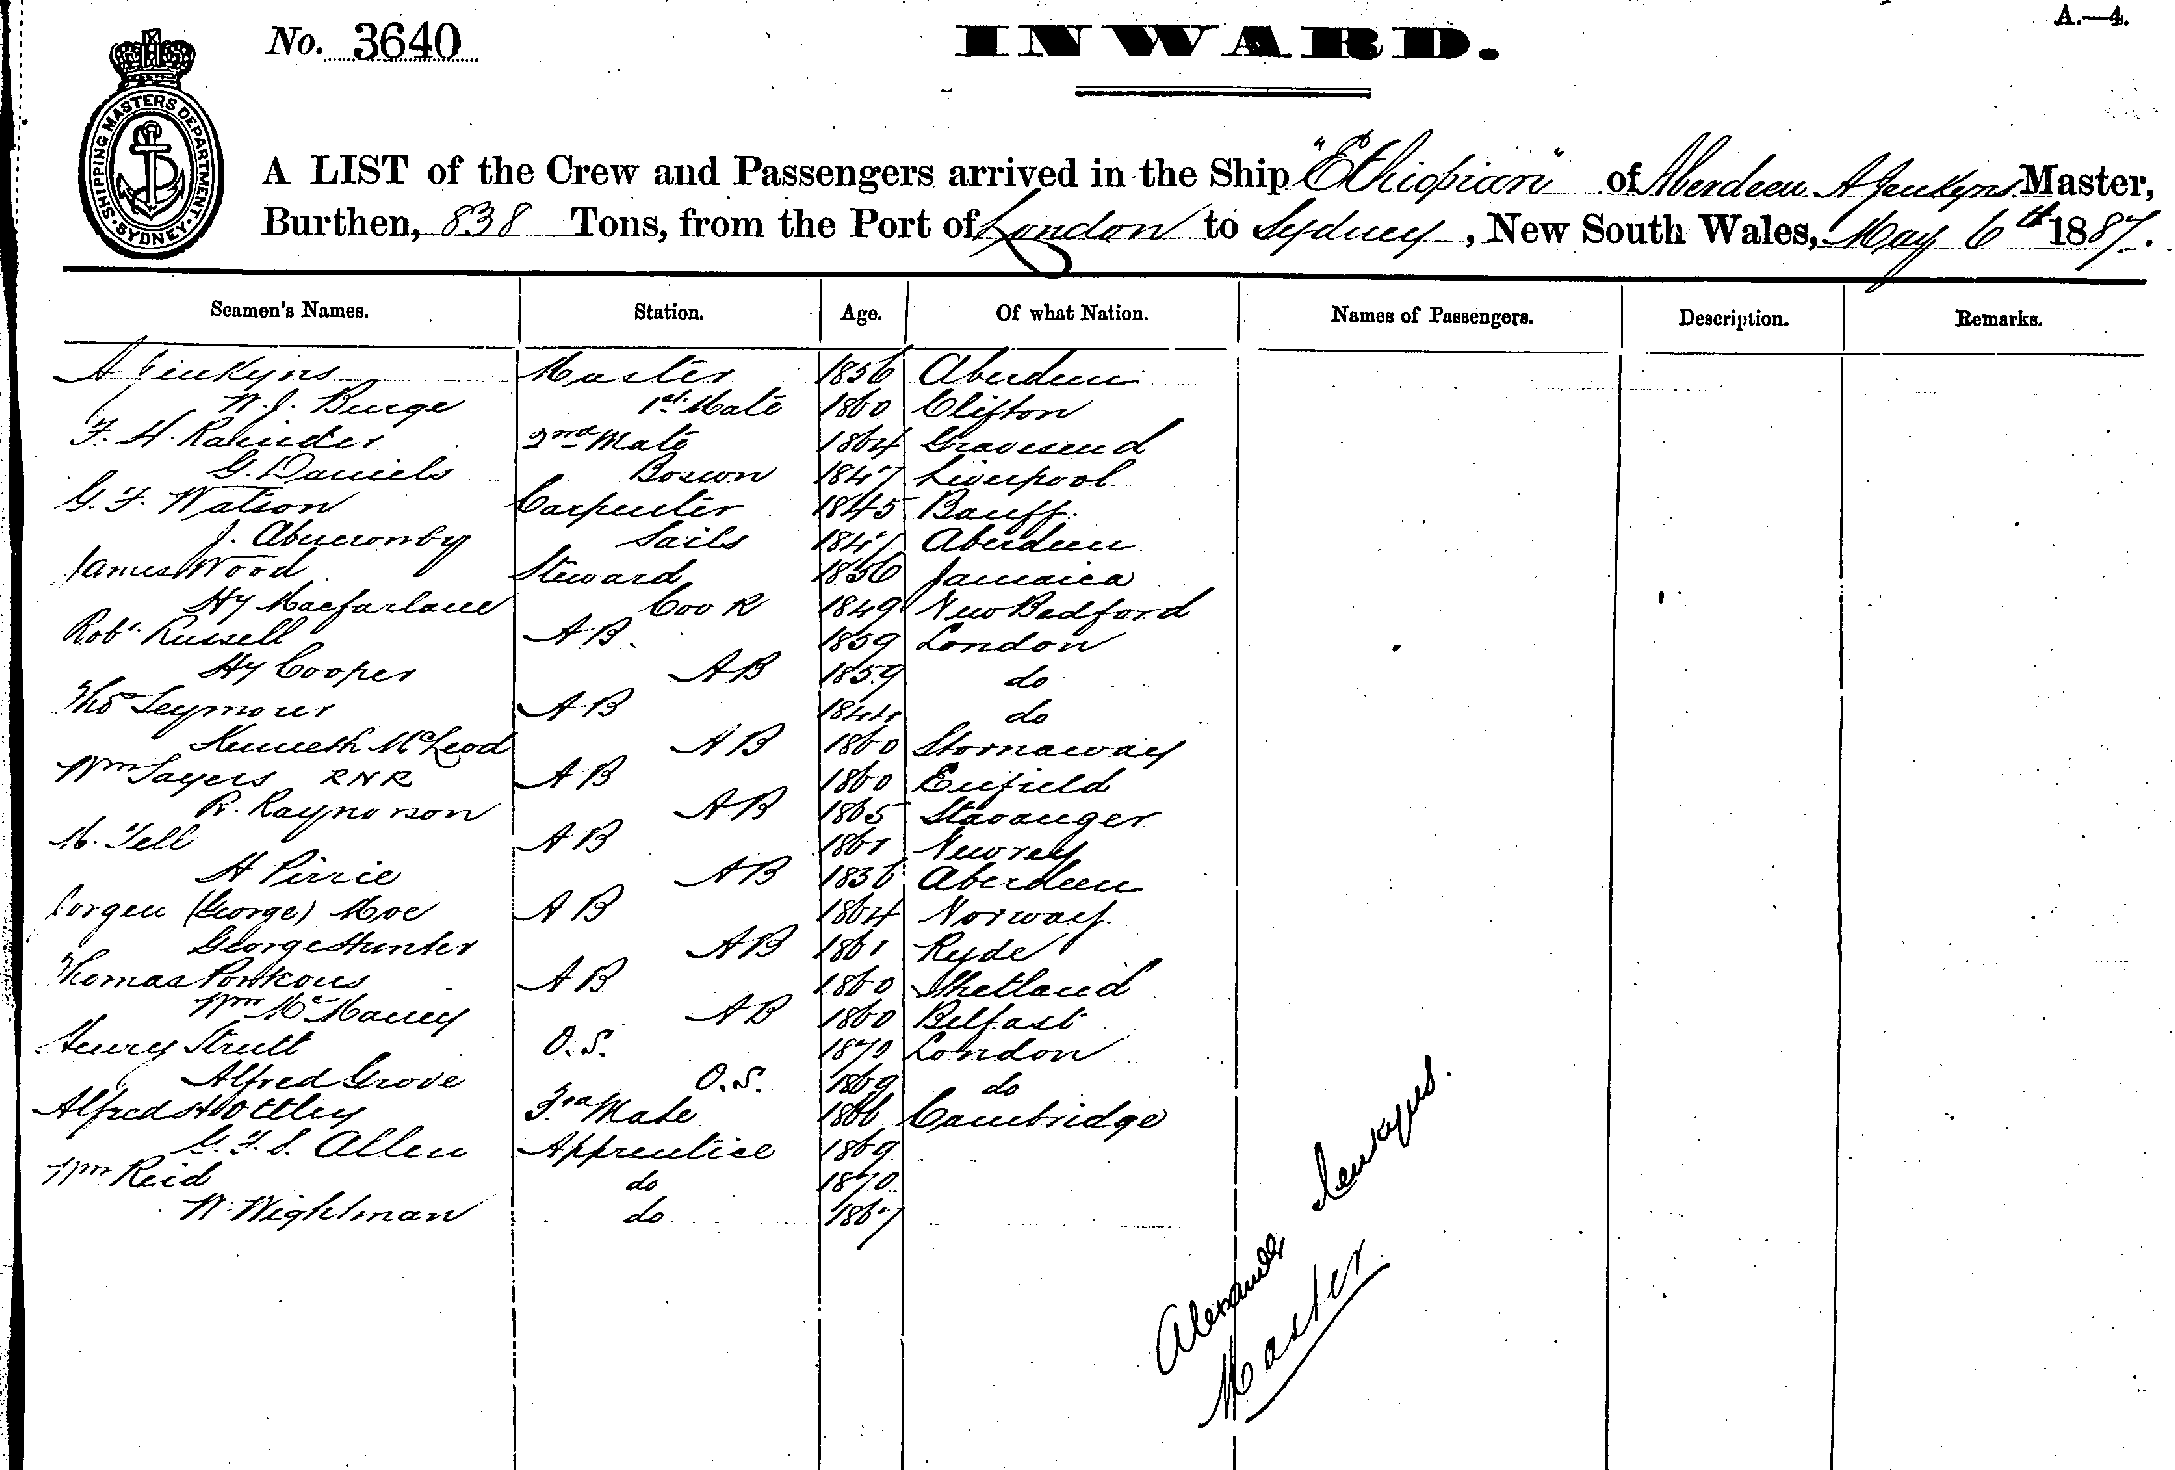 A.—4.
No. 3640
INWARD.
SHIPPING MASTERS DEPARTMENT · SYDNEY ·
A LIST of the Crew and Passengers arrived in the Ship "Ethiopian" of Aberdeen A Jenkyns Master,
Burthen, 838 Tons, from the Port of London to Sydney, New South Wales, May 6th 1887.
Seamen's Names. Station. Age. Of what Nation. Names of Passengers. Description. Remarks.
A Jenkyns Master 1856 Aberdeen
W. J. Burge 1st Mate 1860 Clifton
F. H. 2nd Mate 1864 Gravesend
G. Daniels Boswn 1847 Liverpool
G. F. Watson Carpenter 1845 Banff.
J. Abercromby Sails 1847 Aberdeen
James Wood Steward 1856 Jamaica
Hy Macfarlane Cook 1849 New Bedford
Robt Russell AB. 1859 London
Hy Cooper AB 1859 do
Thos Seymour AB 1844 do
Kenneth McLeod AB 1860 Stornaway
Wm Sayers RNR AB 1860 Enfield
R. Raynorson AB 1865 Stavanger
M. Tell AB 1861 Newrey
A Pirrie AB 1836 Aberdeen
Jorgen (George) Moe AB 1864 Norway
George Hunter AB 1861 Ryde
Thomas AB 1860 Shetland
Wm AB 1860 Belfast
Henry Strutt O.S. 1870 London
Alfred Grove O.S. 1869 do
Alfred H Ottley 3rd Mate 1866 Cambridge
G. F. S. Allen Apprentice 1869
Wm Reid do 1870
W. Wightman do 1867
Alexander Jenkyns.
Master